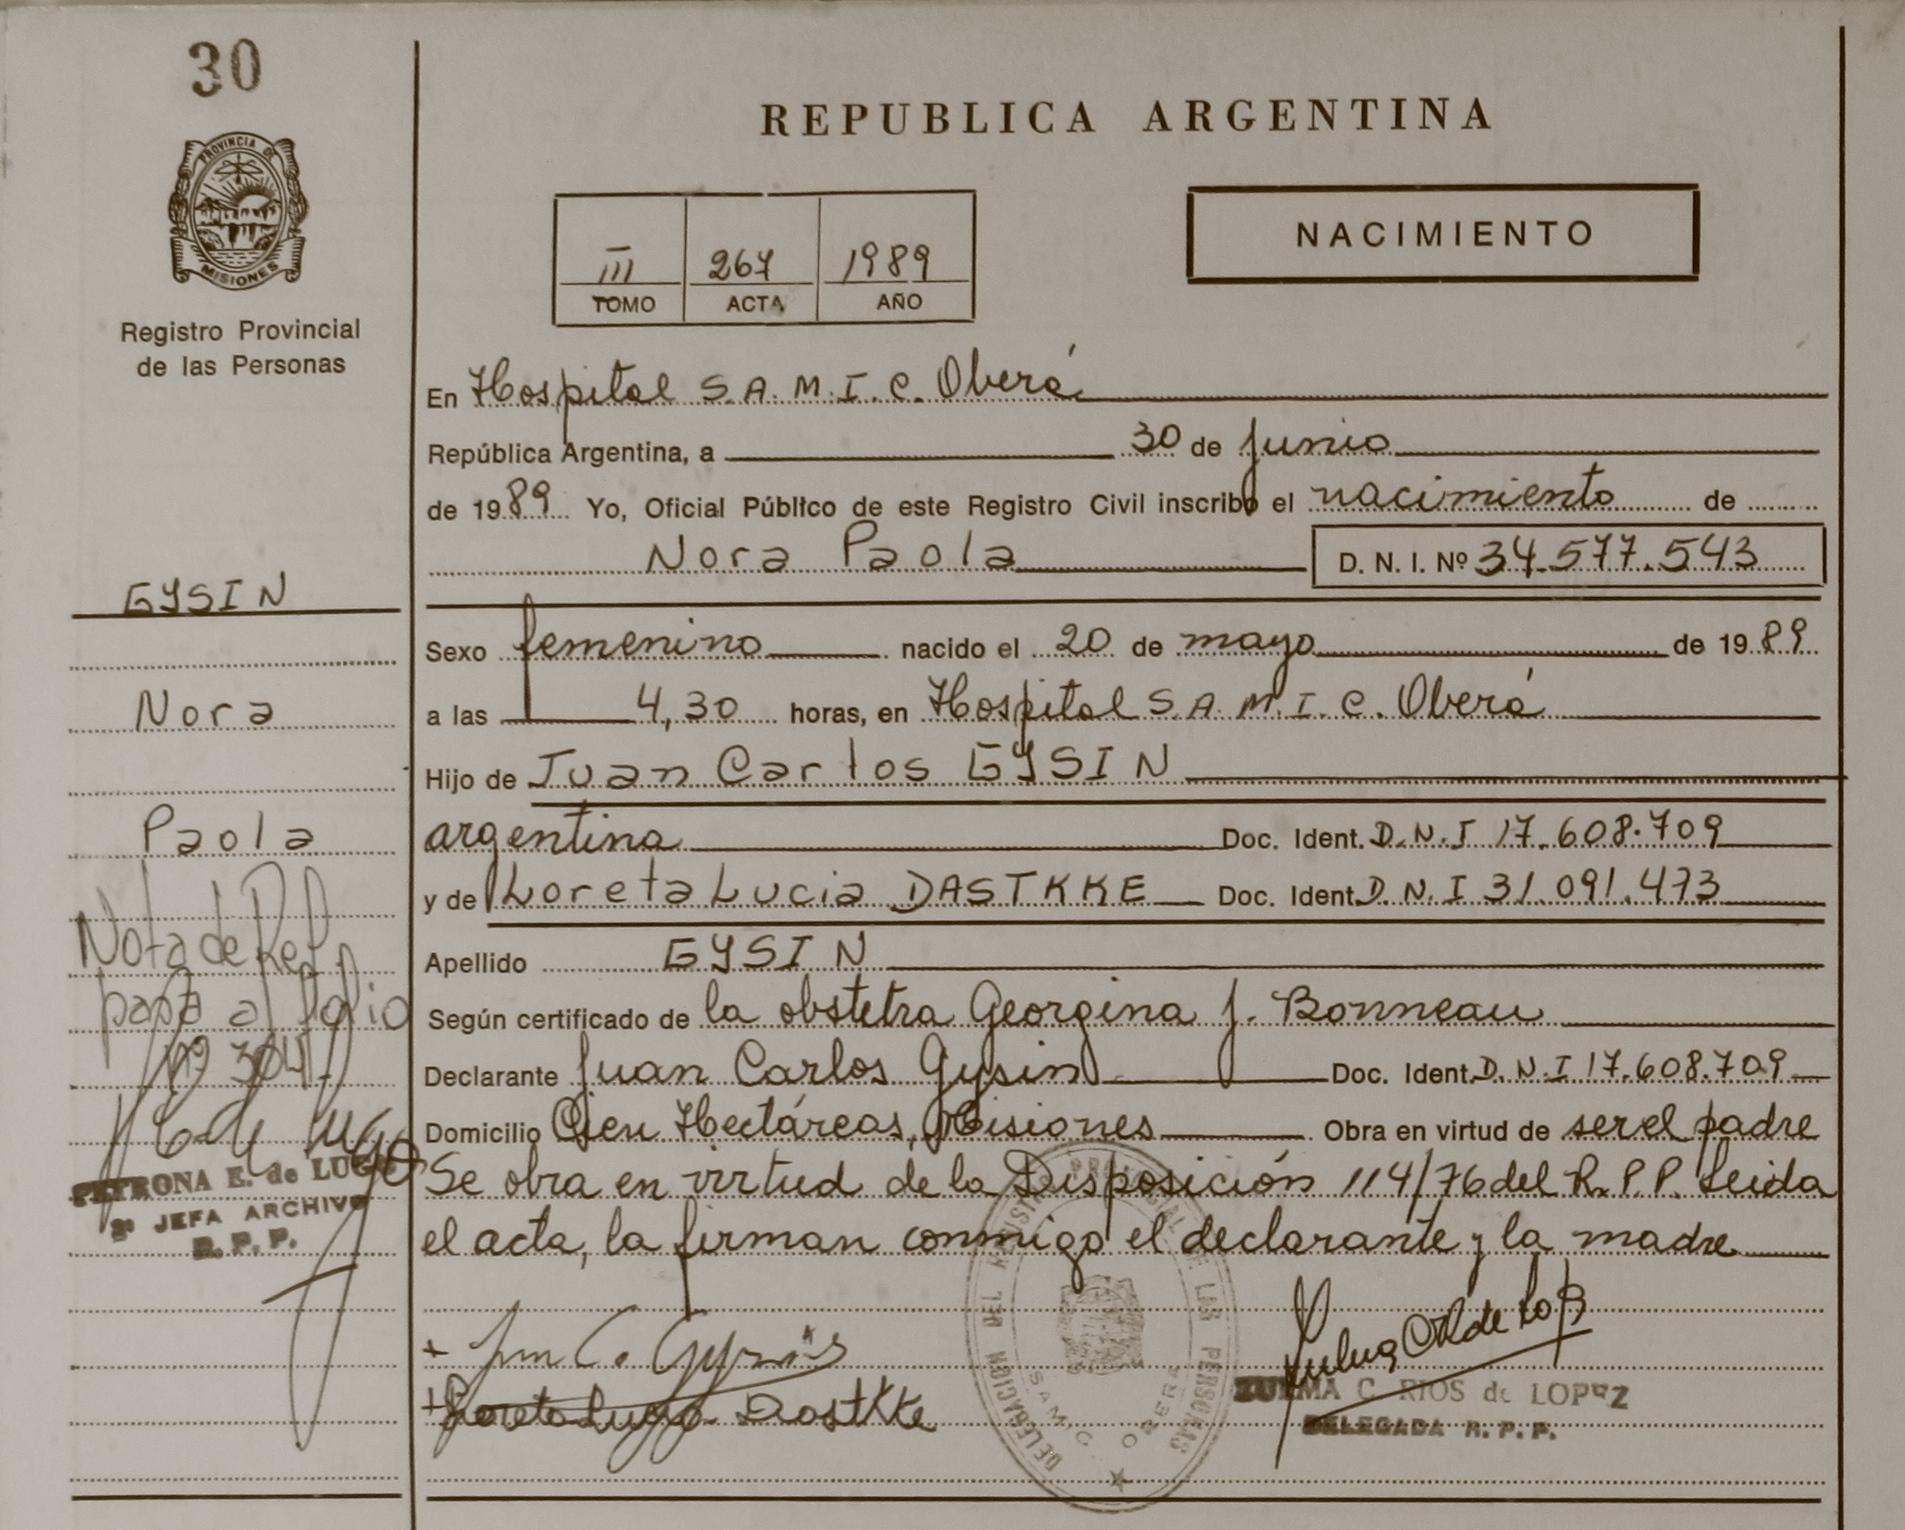 30
PROVINCIA DE
MISIONES
Registro Provincial
de las Personas
GYSIN
Nora
Paola
Nota de Ref.
pasa al folio
Nº 304
PETRONA E. de LUGO
2º JEFA ARCHIVO
R. P. P.
REPUBLICA ARGENTINA
III 267 1989
TOMO ACTA AÑO
NACIMIENTO
En Hospital S.A.M.I.C. Oberá
República Argentina, a 30 de junio
de 1989 Yo, Oficial Público de este Registro Civil inscribo el nacimiento de
Nora Paola D. N. I. Nº 34.577.543
Sexo femenino nacido el 20 de mayo de 1989
a las 4,30 horas, en Hospital S.A.M.I.C. Oberá
Hijo de Juan Carlos GYSIN
argentina Doc. Ident. D.N.I 17.608.709
y de Loreta Lucia DASTKKE Doc. Ident. D.N.I 31.091.473
Apellido GYSIN
Según certificado de la obstetra Georgina J. Bonneau
Declarante Juan Carlos Gysin Doc. Ident. D.N.I 17.608.709
Domicilio Cien Hectáreas, Misiones Obra en virtud de ser el padre
Se obra en virtud de la Disposición 114/76 del R.P.P. Leida
el acta, la firman conmigo el declarante y la madre
DELEGACION DEL REGISTRO PROVINCIAL DE LAS PERSONAS
SAMIC OBERA
ZULMA C. RIOS de LOPEZ
DELEGADA R. P. P.